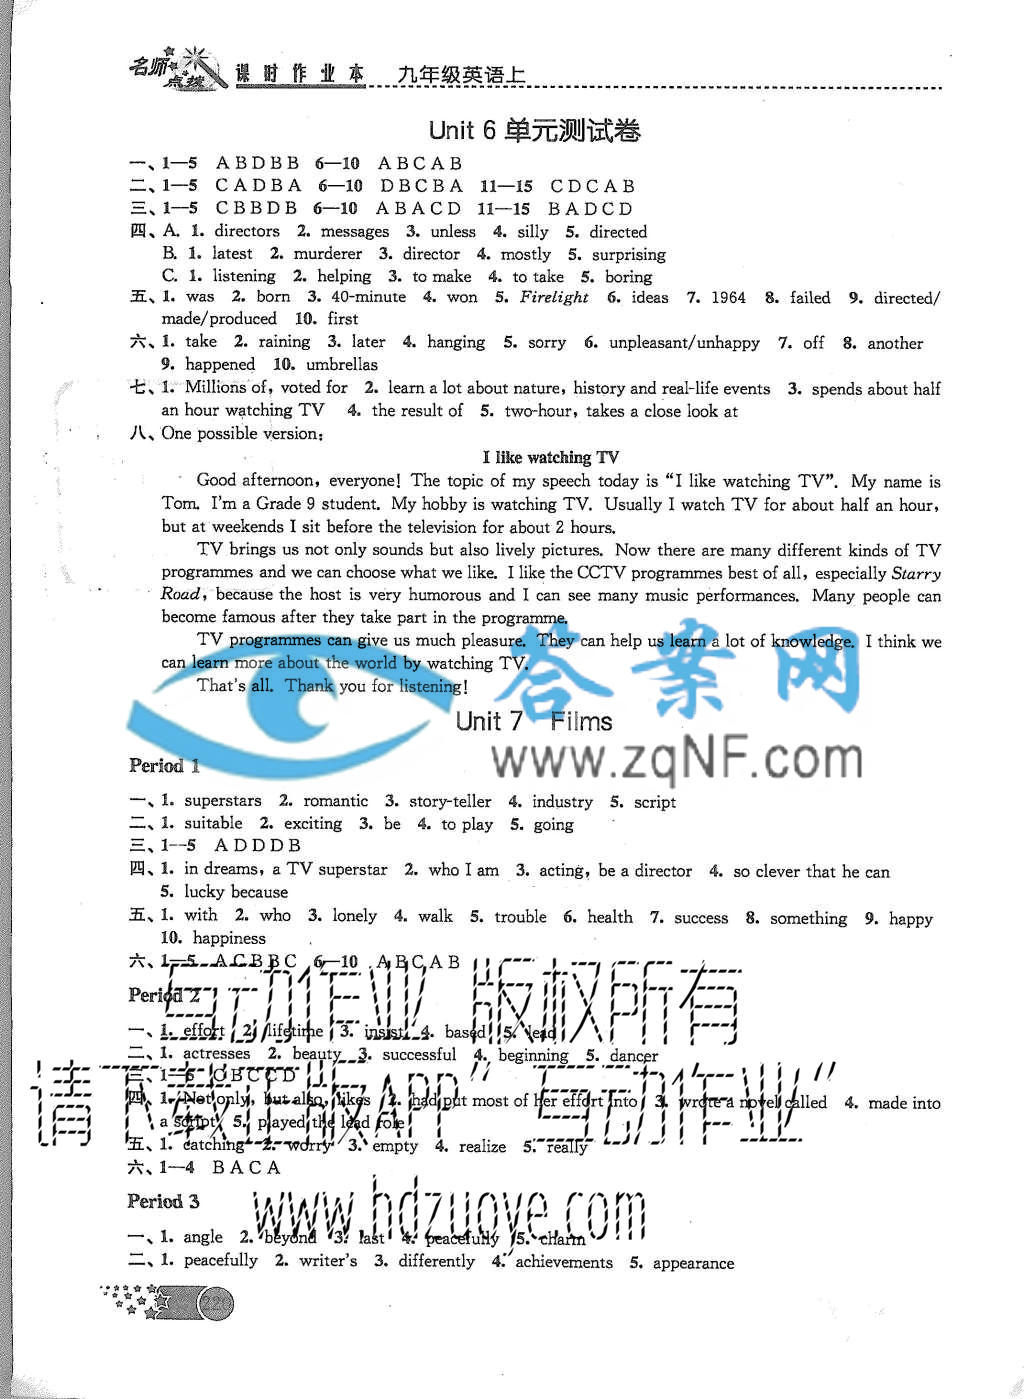 名师点拨 课时作业本 九年级英语上
Unit 6 单元测试卷
一、1—5 A B D B B 6—10 A B C A B
二、1—5 C A D B A 6—10 D B C B A 11—15 C D C A B
三、1—5 C B B D B 6—10 A B A C D 11—15 B A D C D
四、A. 1. directors 2. messages 3. unless 4. silly 5. directed
B. 1. latest 2. murderer 3. director 4. mostly 5. surprising
C. 1. listening 2. helping 3. to make 4. to take 5. boring
五、1. was 2. born 3. 40-minute 4. won 5. Firelight 6. ideas 7. 1964 8. failed 9. directed/
made/produced 10. first
六、1. take 2. raining 3. later 4. hanging 5. sorry 6. unpleasant/unhappy 7. off 8. another
9. happened 10. umbrellas
七、1. Millions of, voted for 2. learn a lot about nature, history and real-life events 3. spends about half
an hour watching TV 4. the result of 5. two-hour, takes a close look at
八、One possible version:
I like watching TV
Good afternoon, everyone! The topic of my speech today is “I like watching TV”. My name is
Tom. I'm a Grade 9 student. My hobby is watching TV. Usually I watch TV for about half an hour,
but at weekends I sit before the television for about 2 hours.
TV brings us not only sounds but also lively pictures. Now there are many different kinds of TV
programmes and we can choose what we like. I like the CCTV programmes best of all, especially Starry
Road, because the host is very humorous and I can see many music performances. Many people can
become famous after they take part in the programme.
TV programmes can give us much pleasure. They can help us learn a lot of knowledge. I think we
can learn more about the world by watching TV.
That's all. Thank you for listening!
答案网
www.zqNF.com
Unit 7 Films
Period 1
一、1. superstars 2. romantic 3. story-teller 4. industry 5. script
二、1. suitable 2. exciting 3. be 4. to play 5. going
三、1—5 A D D D B
四、1. in dreams, a TV superstar 2. who I am 3. acting, be a director 4. so clever that he can
5. lucky because
五、1. with 2. who 3. lonely 4. walk 5. trouble 6. health 7. success 8. something 9. happy
10. happiness
六、1—5 A C B B C 6—10 A B C A B
互动作业 版权所有
Period 2
一、1. effort 2. lifetime 3. insist 4. based 5. lead
二、1. actresses 2. beauty 3. successful 4. beginning 5. dancer
三、1—5 C B C C D
请下载正版APP“互动作业”
四、1. Not only, but also, likes 2. had put most of her effort into 3. wrote a novel called 4. made into
a script 5. played the lead role
五、1. catching 2. worry 3. empty 4. realize 5. really
六、1—4 B A C A
Period 3
www.hdzuoye.com
一、1. angle 2. beyond 3. last 4. peacefully 5. charm
二、1. peacefully 2. writer's 3. differently 4. achievements 5. appearance
220